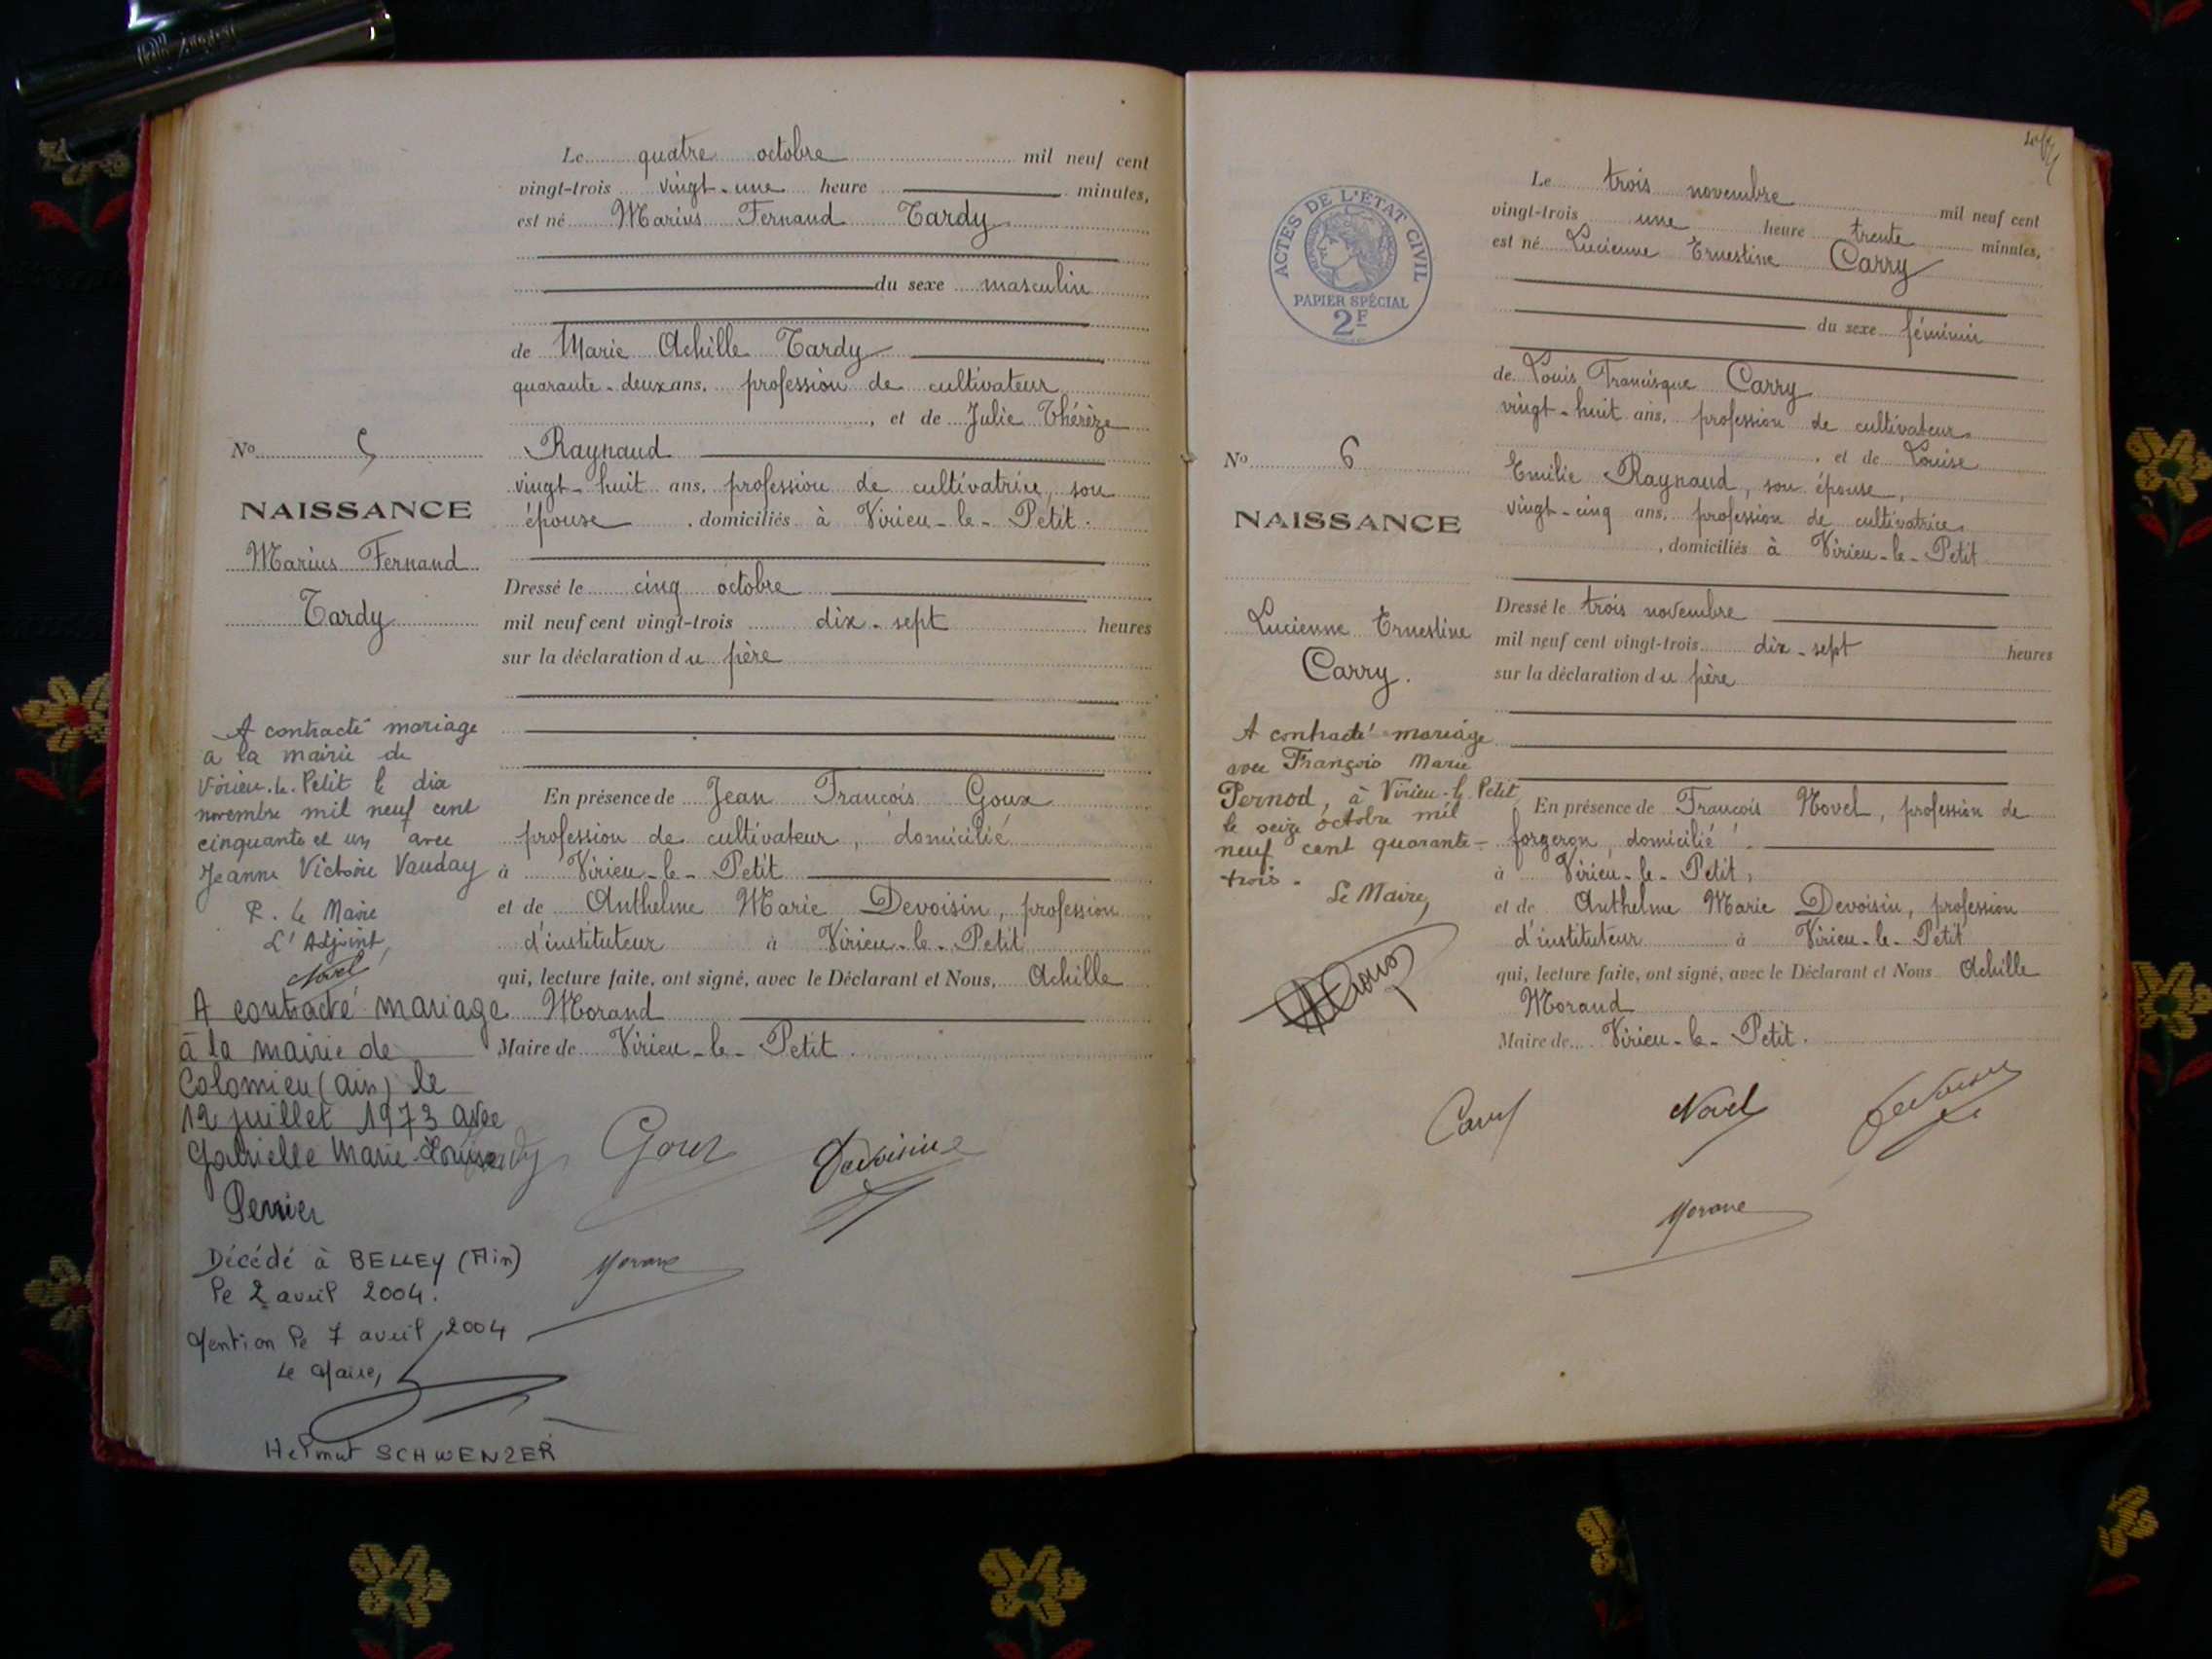 Le quatre octobre mil neuf cent
vingt-trois vingt-une heure minutes,
est né Marius Fernand Tardy
du sexe masculin
de Marie Achille Tardy
quarante-deux ans, profession de cultivateur
, et de Julie Thérèze
Raynaud
vingt-huit ans, profession de cultivatrice, son
épouse, domiciliés à Virieu-le-Petit.
Dressé le cinq octobre
mil neuf cent vingt-trois dix-sept heures
sur la déclaration du père
En présence de Jean François Goux
profession de cultivateur, domicilié
à Virieu-le-Petit
et de Anthelme Marie Devoisin, profession
d'instituteur à Virieu-le-Petit
qui, lecture faite, ont signé, avec le Déclarant et Nous, Achille
Morand
Maire de Virieu-le-Petit.
Goux Devoisin
Morand
No 5
NAISSANCE
Marius Fernand
Tardy
A contracté mariage
à la mairie de
Virieu-le-Petit le dix
novembre mil neuf cent
cinquante et un avec
Jeanne Victoire Vauday
P. le Maire
L'Adjoint,
Novel
A contracté mariage
à la mairie de
Colomieu (ain) le
12 juillet 1973 avec
Gabrielle Marie-Louise
Perrier
Décédé à BELLEY (Ain)
le 2 avril 2004.
Mention le 7 avril 2004
Le Maire,
Helmut SCHWENZER
ACTES DE L'ÉTAT CIVIL
PAPIER SPÉCIAL
2F
Le trois novembre mil neuf cent
vingt-trois une heure trente minutes,
est né Lucienne Ernestine Carry
du sexe féminin
de Louis Francisque Carry
vingt-huit ans, profession de cultivateur
, et de Louise
Emilie Raynaud, son épouse,
vingt-cinq ans, profession de cultivatrice
, domiciliés à Virieu-le-Petit
Dressé le trois novembre
mil neuf cent vingt-trois dix-sept heures
sur la déclaration du père
En présence de François Novel, profession de
forgeron, domicilié
à Virieu-le-Petit,
et de Anthelme Marie Devoisin, profession
d'instituteur à Virieu-le-Petit
qui, lecture faite, ont signé, avec le Déclarant et Nous Achille
Morand
Maire de Virieu-le-Petit.
Carry Novel Devoisin
Morand
No 6
NAISSANCE
Lucienne Ernestine
Carry.
A contracté mariage
avec François Marie
Pernod, à Virieu-le-Petit
le seize octobre mil
neuf cent quarante-
trois.
Le Maire,